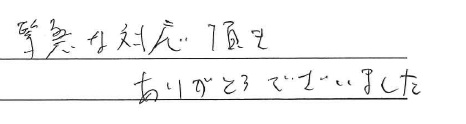 緊急な対応頂き
ありがとうございました